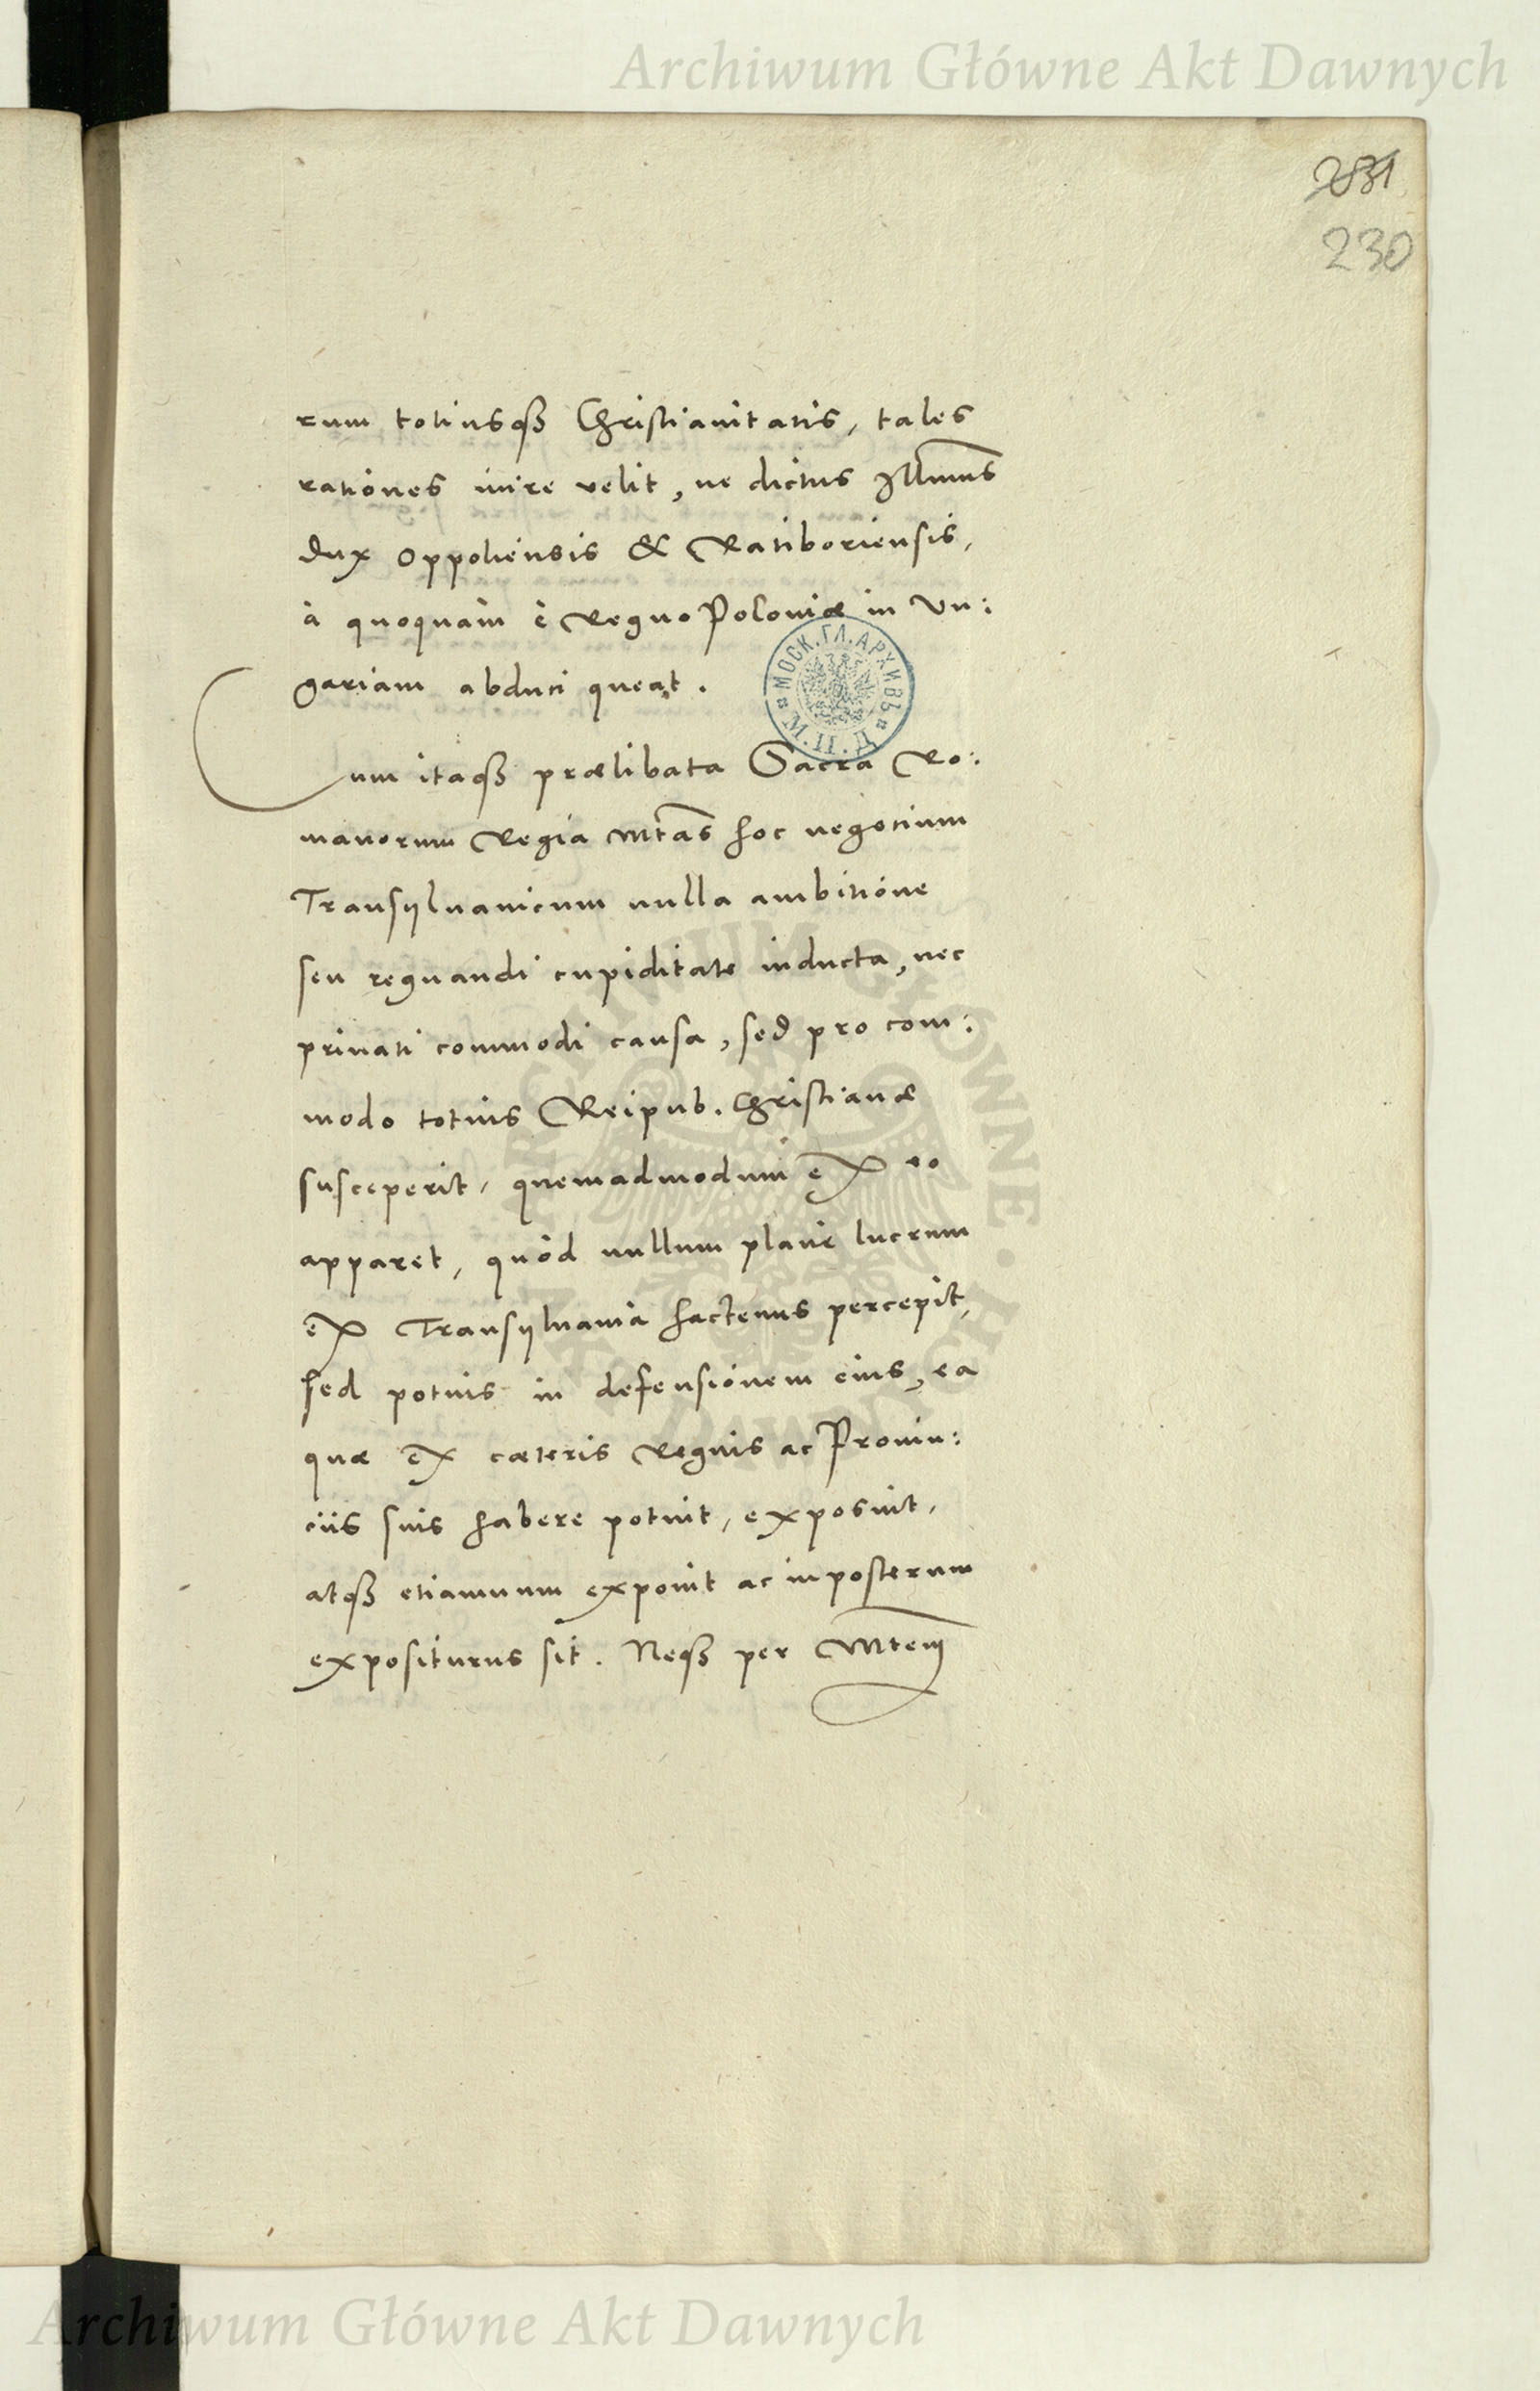 Archiwum Główne Akt Dawnych
231
230
rum totiusqȝ Christianitatis, tales
rationes inire velit, ne dictus Illmus
Dux Oppoliensis & Ratiboriensis,
à quoquam è Regno Poloniæ in Vn:
gariam abduci queat.
МОСК. ГЛ. АРХИВЪ
Cum itaqȝ prælibata Sacra Ro:
manorum Regia Mtas hoc negotium
Transyluanicum nulla ambitione
seu regnandi cupiditate inducta, nec
priuati commodi causa, sed pro com:
modo totius Reipub. Christianæ
susceperit, quemadmodum ex eo
apparet, quòd nullum planè lucrum
ex Transyluania hactenus percepit,
sed potius in defensionem eius, ea
quæ ex cæteris Regnis ac Prouin:
ciis suis habere potuit, exposuit,
atqȝ etiamnum exponit ac inposterum
expositurus sit. Neqȝ per Mtem
Archiwum Główne Akt Dawnych